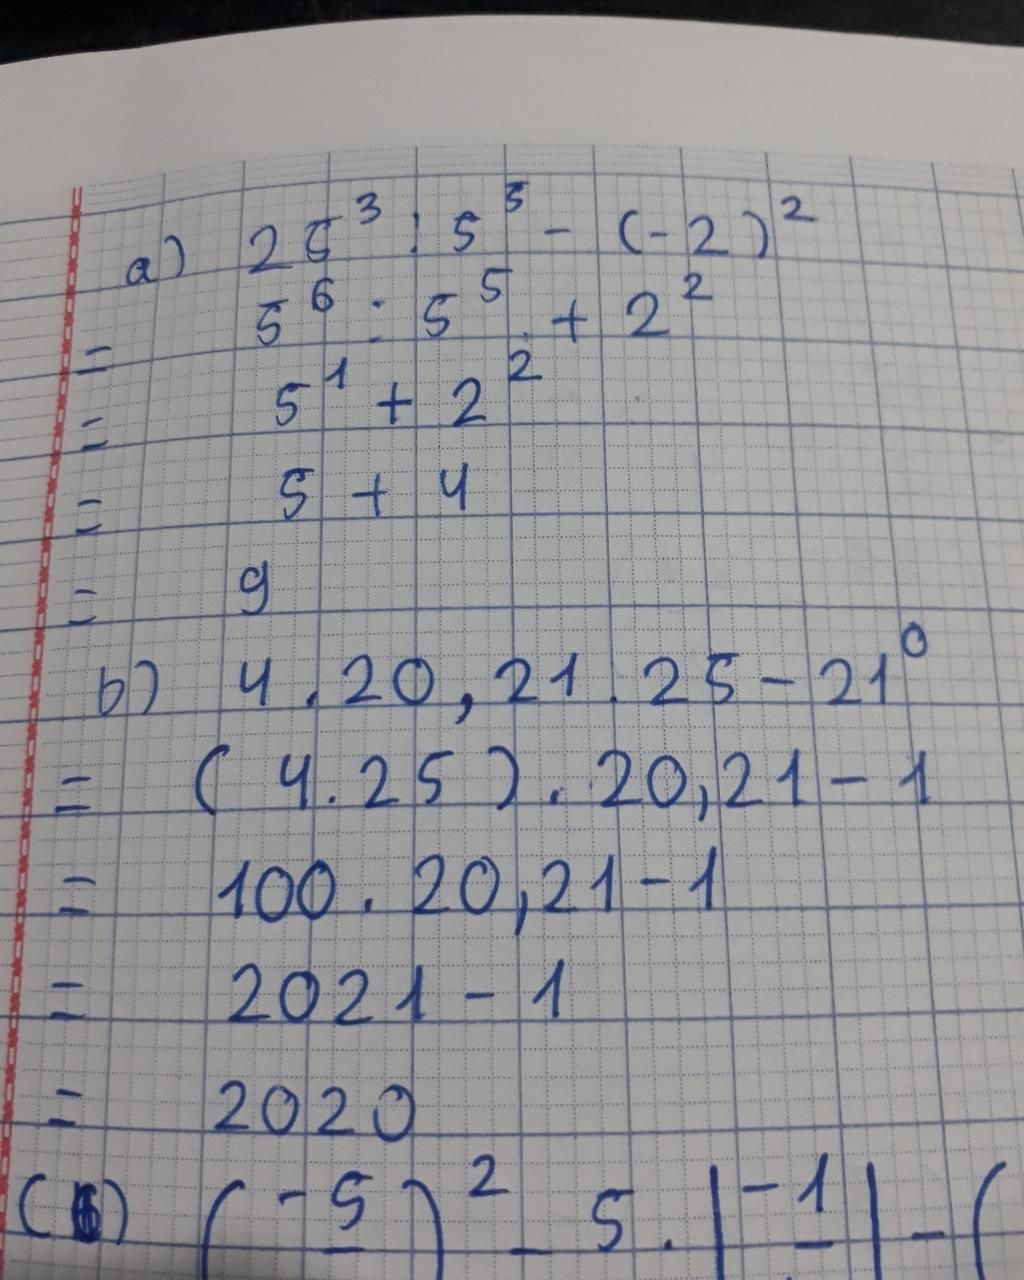 a) 25³ : 5⁵ - (-2)²
= 5⁶ : 5⁵ + 2²
= 5¹ + 2²
= 5 + 4
= 9
b) 4 . 20,21 . 25 - 21⁰
= (4.25) . 20,21 - 1
= 100 . 20,21 - 1
= 2021 - 1
= 2020
( -5 )² - 5 . | -1 | - (